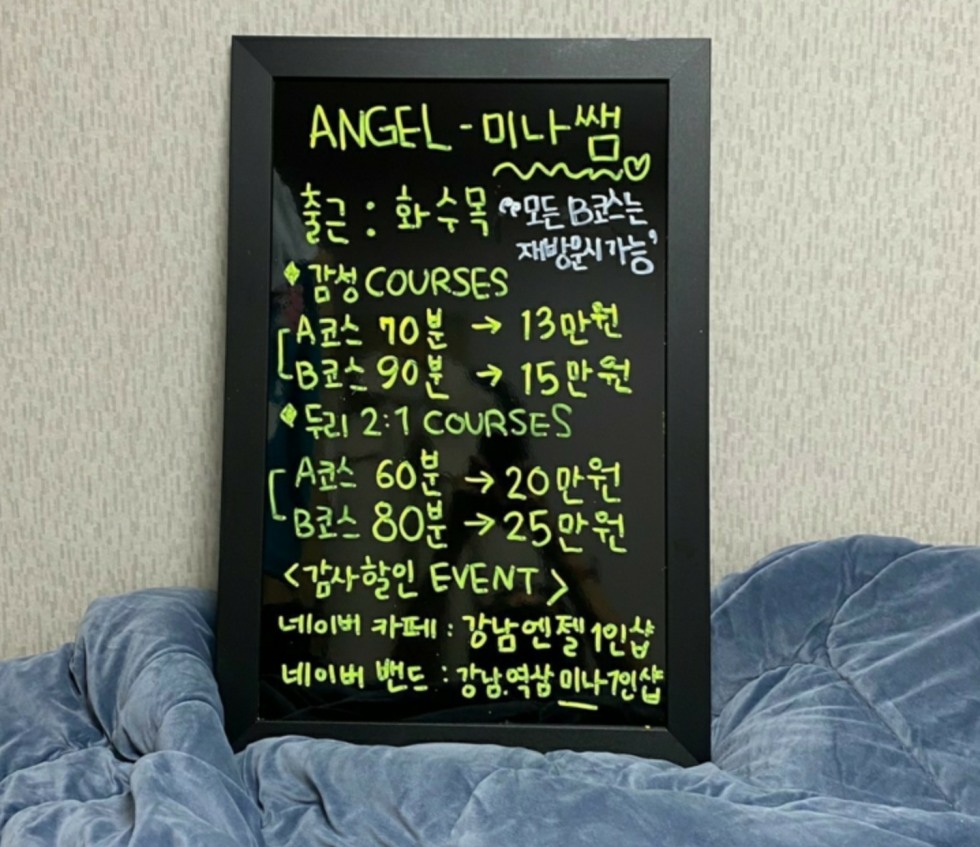 ANGEL - 미나쌤
출근 : 화 수 목 "모든 B코스는
재방문시 가능"
감성 COURSES
A코스 70분 → 13만원
B코스 90분 → 15만원
두리 2:1 COURSES
A코스 60분 → 20만원
B코스 80분 → 25만원
<감사할인 EVENT>
네이버 카페 : 강남엔젤1인샵
네이버 밴드 : 강남.역삼 미나1인샵